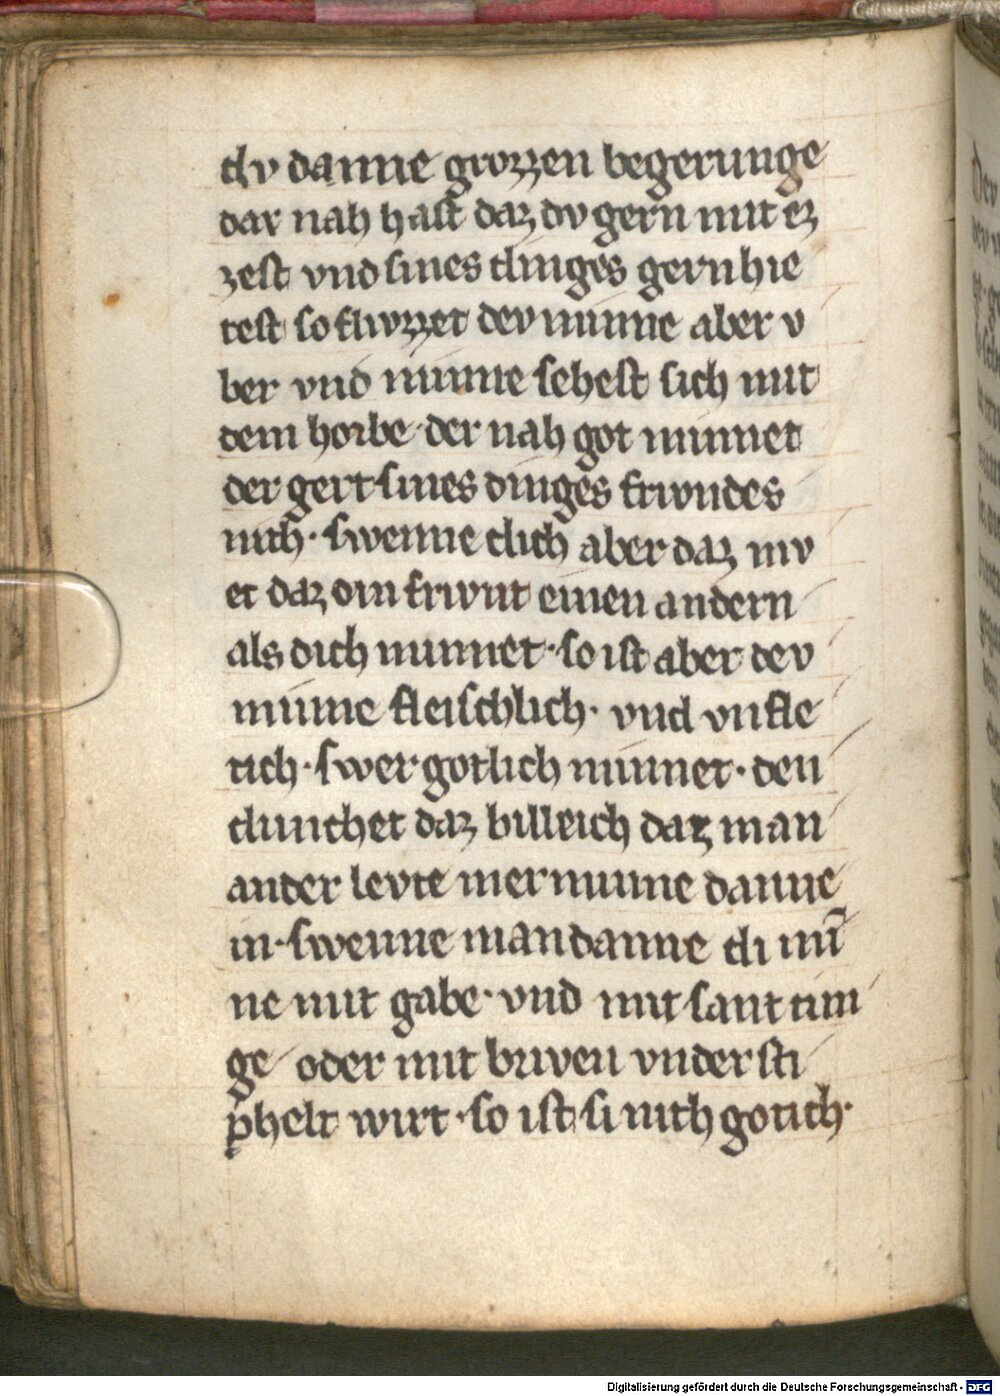 dv danne grozzen begerunge
dar nah hast daz dv gern mit ez
zest vnd sines dinges gern hie
test so flivzzet dev minne aber v
ber vnd minne sehest sich mit
dem horbe · der nah got minnet
der gert sines dinges frivndes
nith · swenne dich aber daz mv
et daz din frivnt einen andern
als dich minnet · so ist aber dev
minne fleischlich · vnd vnfle
tich · swer gotlich minnet · den
dunchet daz billeich daz man
ander levte mer minne danne
in · swenne man danne di min̄
ne mit gabe · vnd mit sant tun
ge oder mit briven vndersti
p̄helt wirt · so ist si nith gotich ·
Digitalisierung gefördert durch die Deutsche Forschungsgemeinschaft - DFG